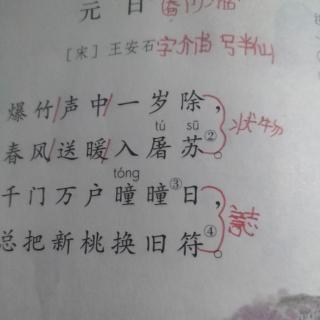 元日
[宋] 王安石 字介甫 号半山
爆竹/声中/一岁除, 状物
tú sū
春风/送暖/入屠苏②。
tóng
千门万户曈曈③日,
总把新桃换旧符④。